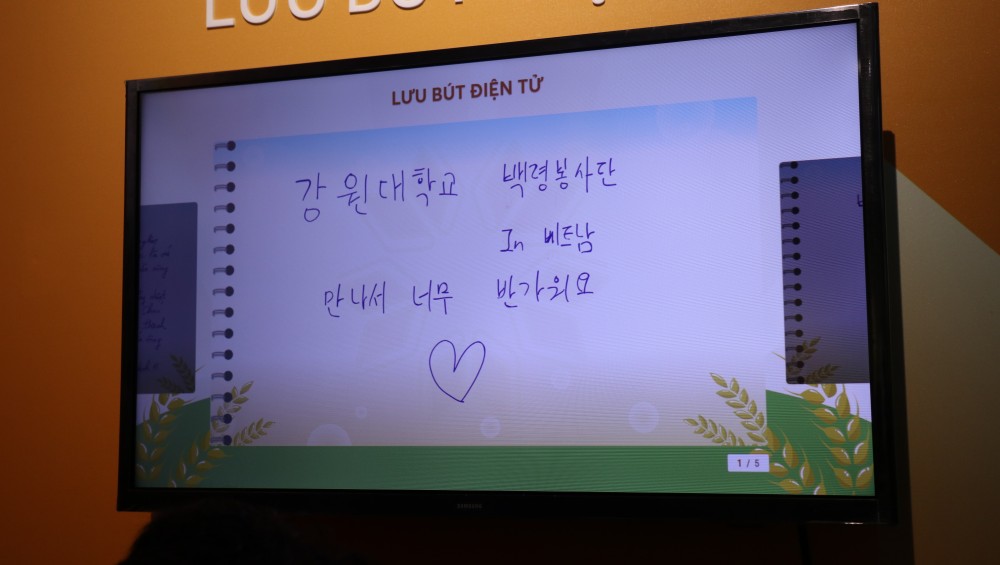 LƯU BÚT ĐIỆN TỬ
강원대학교 백령봉사단
In 베트남
만나서 너무 반가워요
1 / 5
SAMSUNG